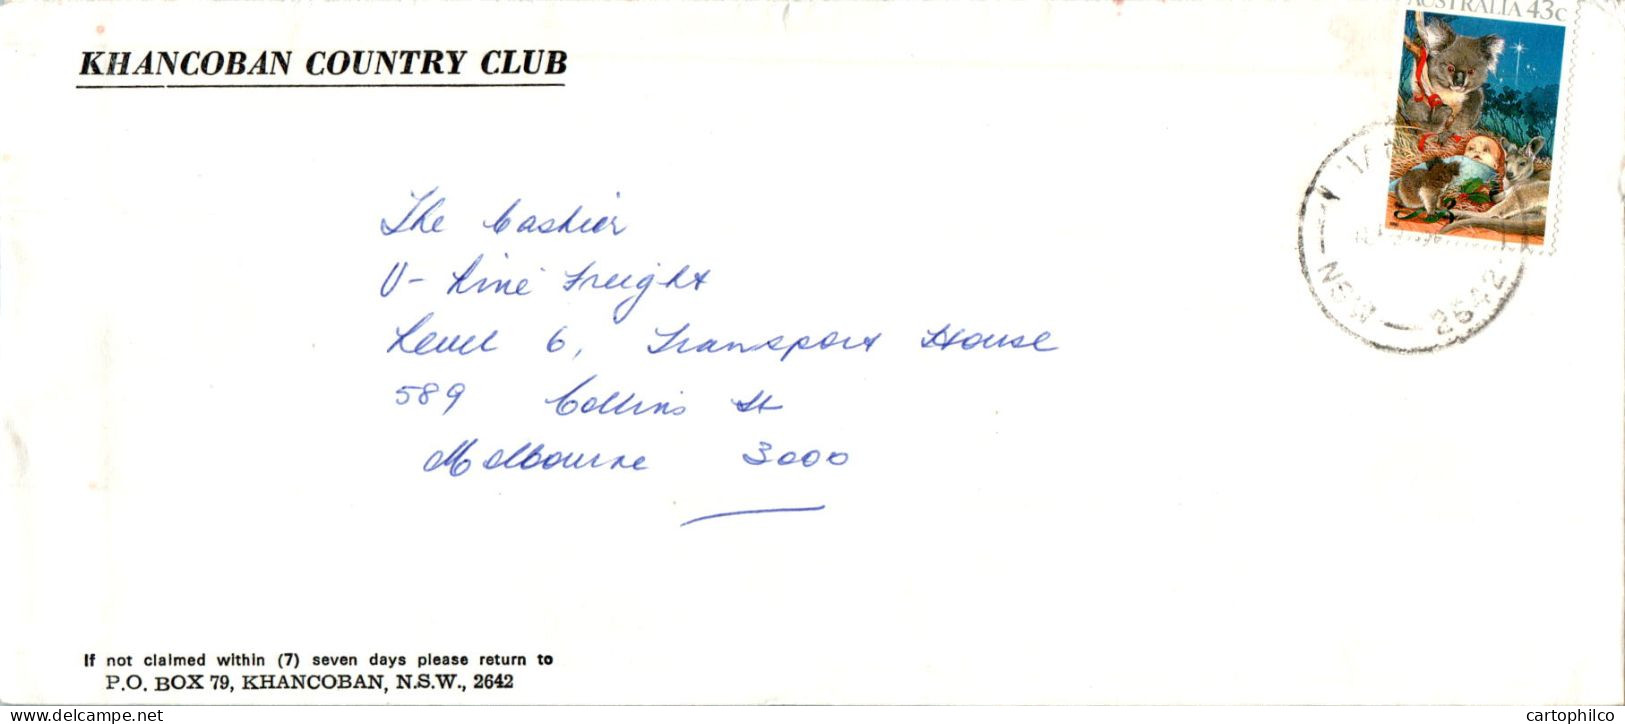 KHANCOBAN COUNTRY CLUB
AUSTRALIA 43c
NSW — 2642
The Cashier
V-Line Freight
Level 6, Transport House
589 Collins St
Melbourne 3000
If not claimed within (7) seven days please return to
P.O. BOX 79, KHANCOBAN, N.S.W., 2642
delcampe.net
cartophilco